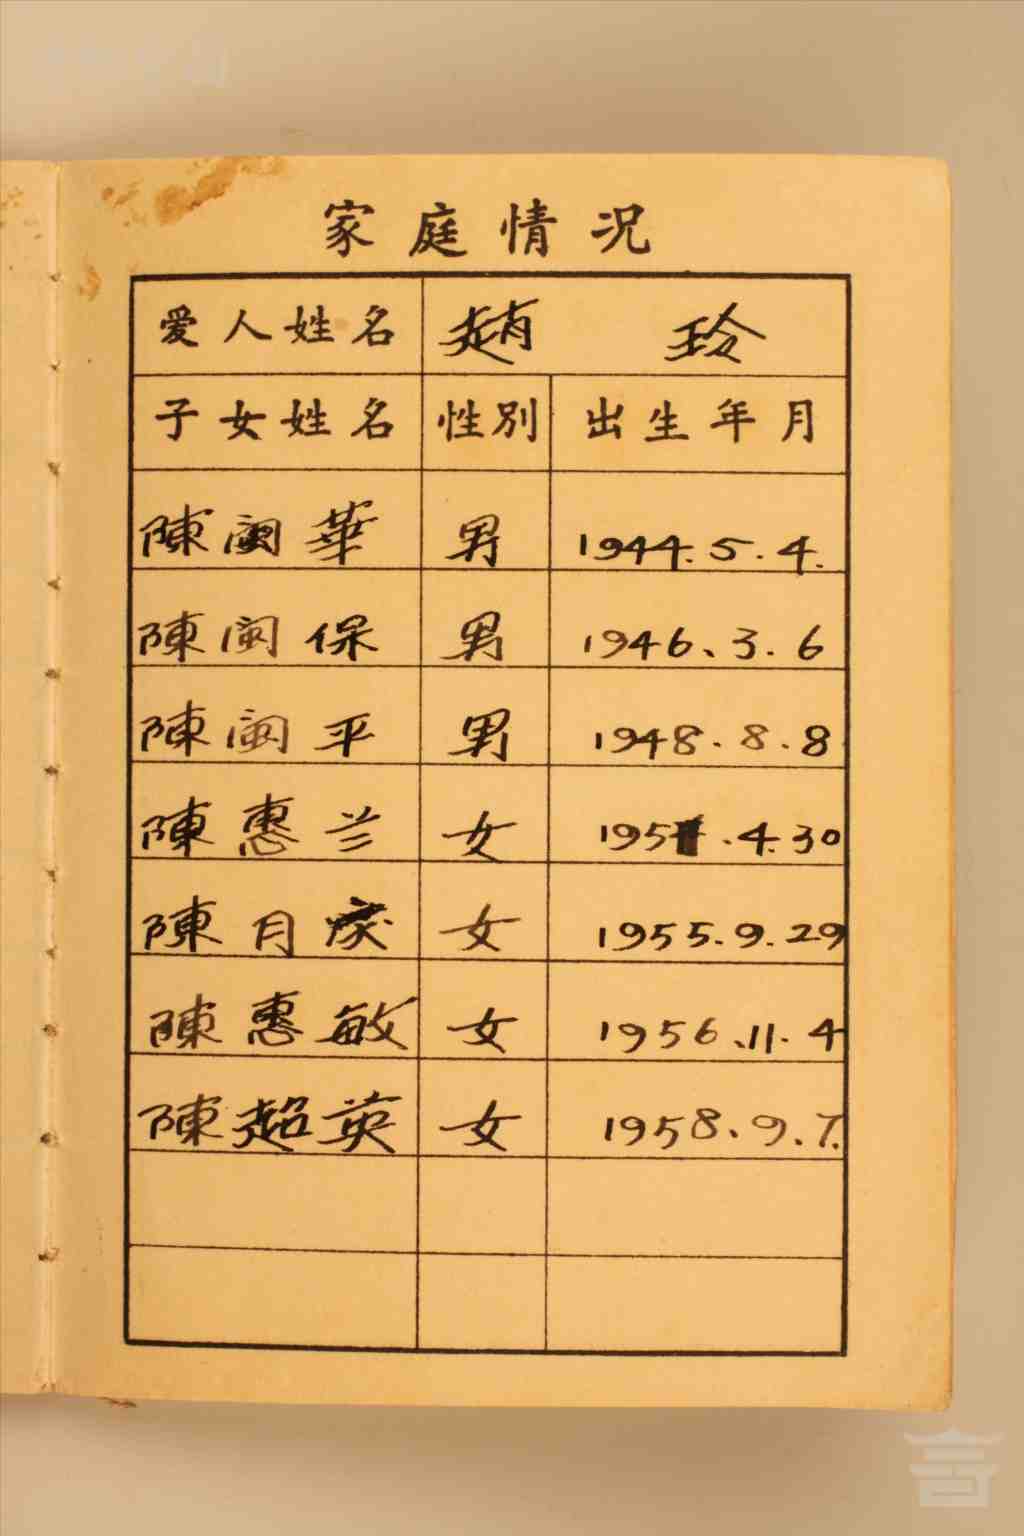 家庭情况
爱人姓名 趙玲
子女姓名 性別 出生年月
陳闽華 男 1944.5.4.
陳闽保 男 1946、3.6
陳闽平 男 1948.8.8
陳惠兰 女 195 .4.30
陳月 女 1955.9.29
陳惠敏 女 1956、11.4
陳超英 女 1958、9.7.